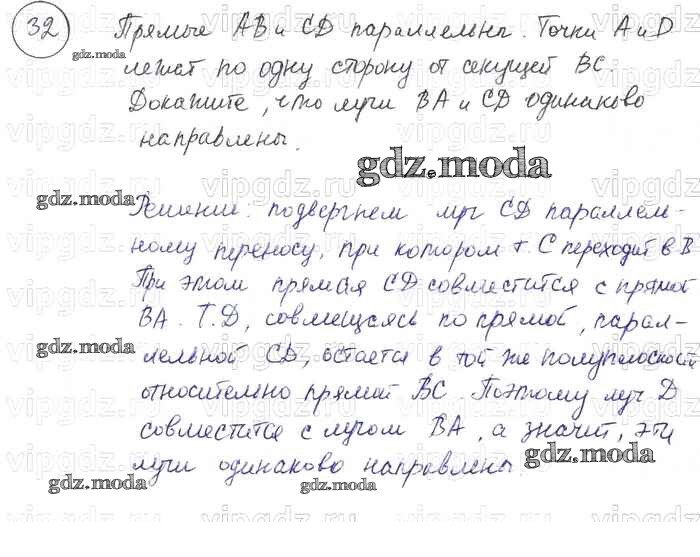 32 Прямые АВ и CD параллельны. Точки А и D
лежат по одну сторону от секущей ВС.
Докажите, что лучи ВА и CD одинаково
направлены.
gdz.moda
Решение: подвергнем луч CD параллель-
ному переносу, при котором т. С переходит в В
При этом прямая CD совместится с прямой
ВА. Т. D, совмещаясь по прямой, парал-
лельной CD, остается в той же полуплоскости
относительно прямой ВС. Поэтому луч D
совместится с лучом ВА, а значит, эти
лучи одинаково направлены.
gdz.moda
gdz.moda
gdz.moda
gdz.moda
gdz.moda
gdz.moda
vipgdz.ru